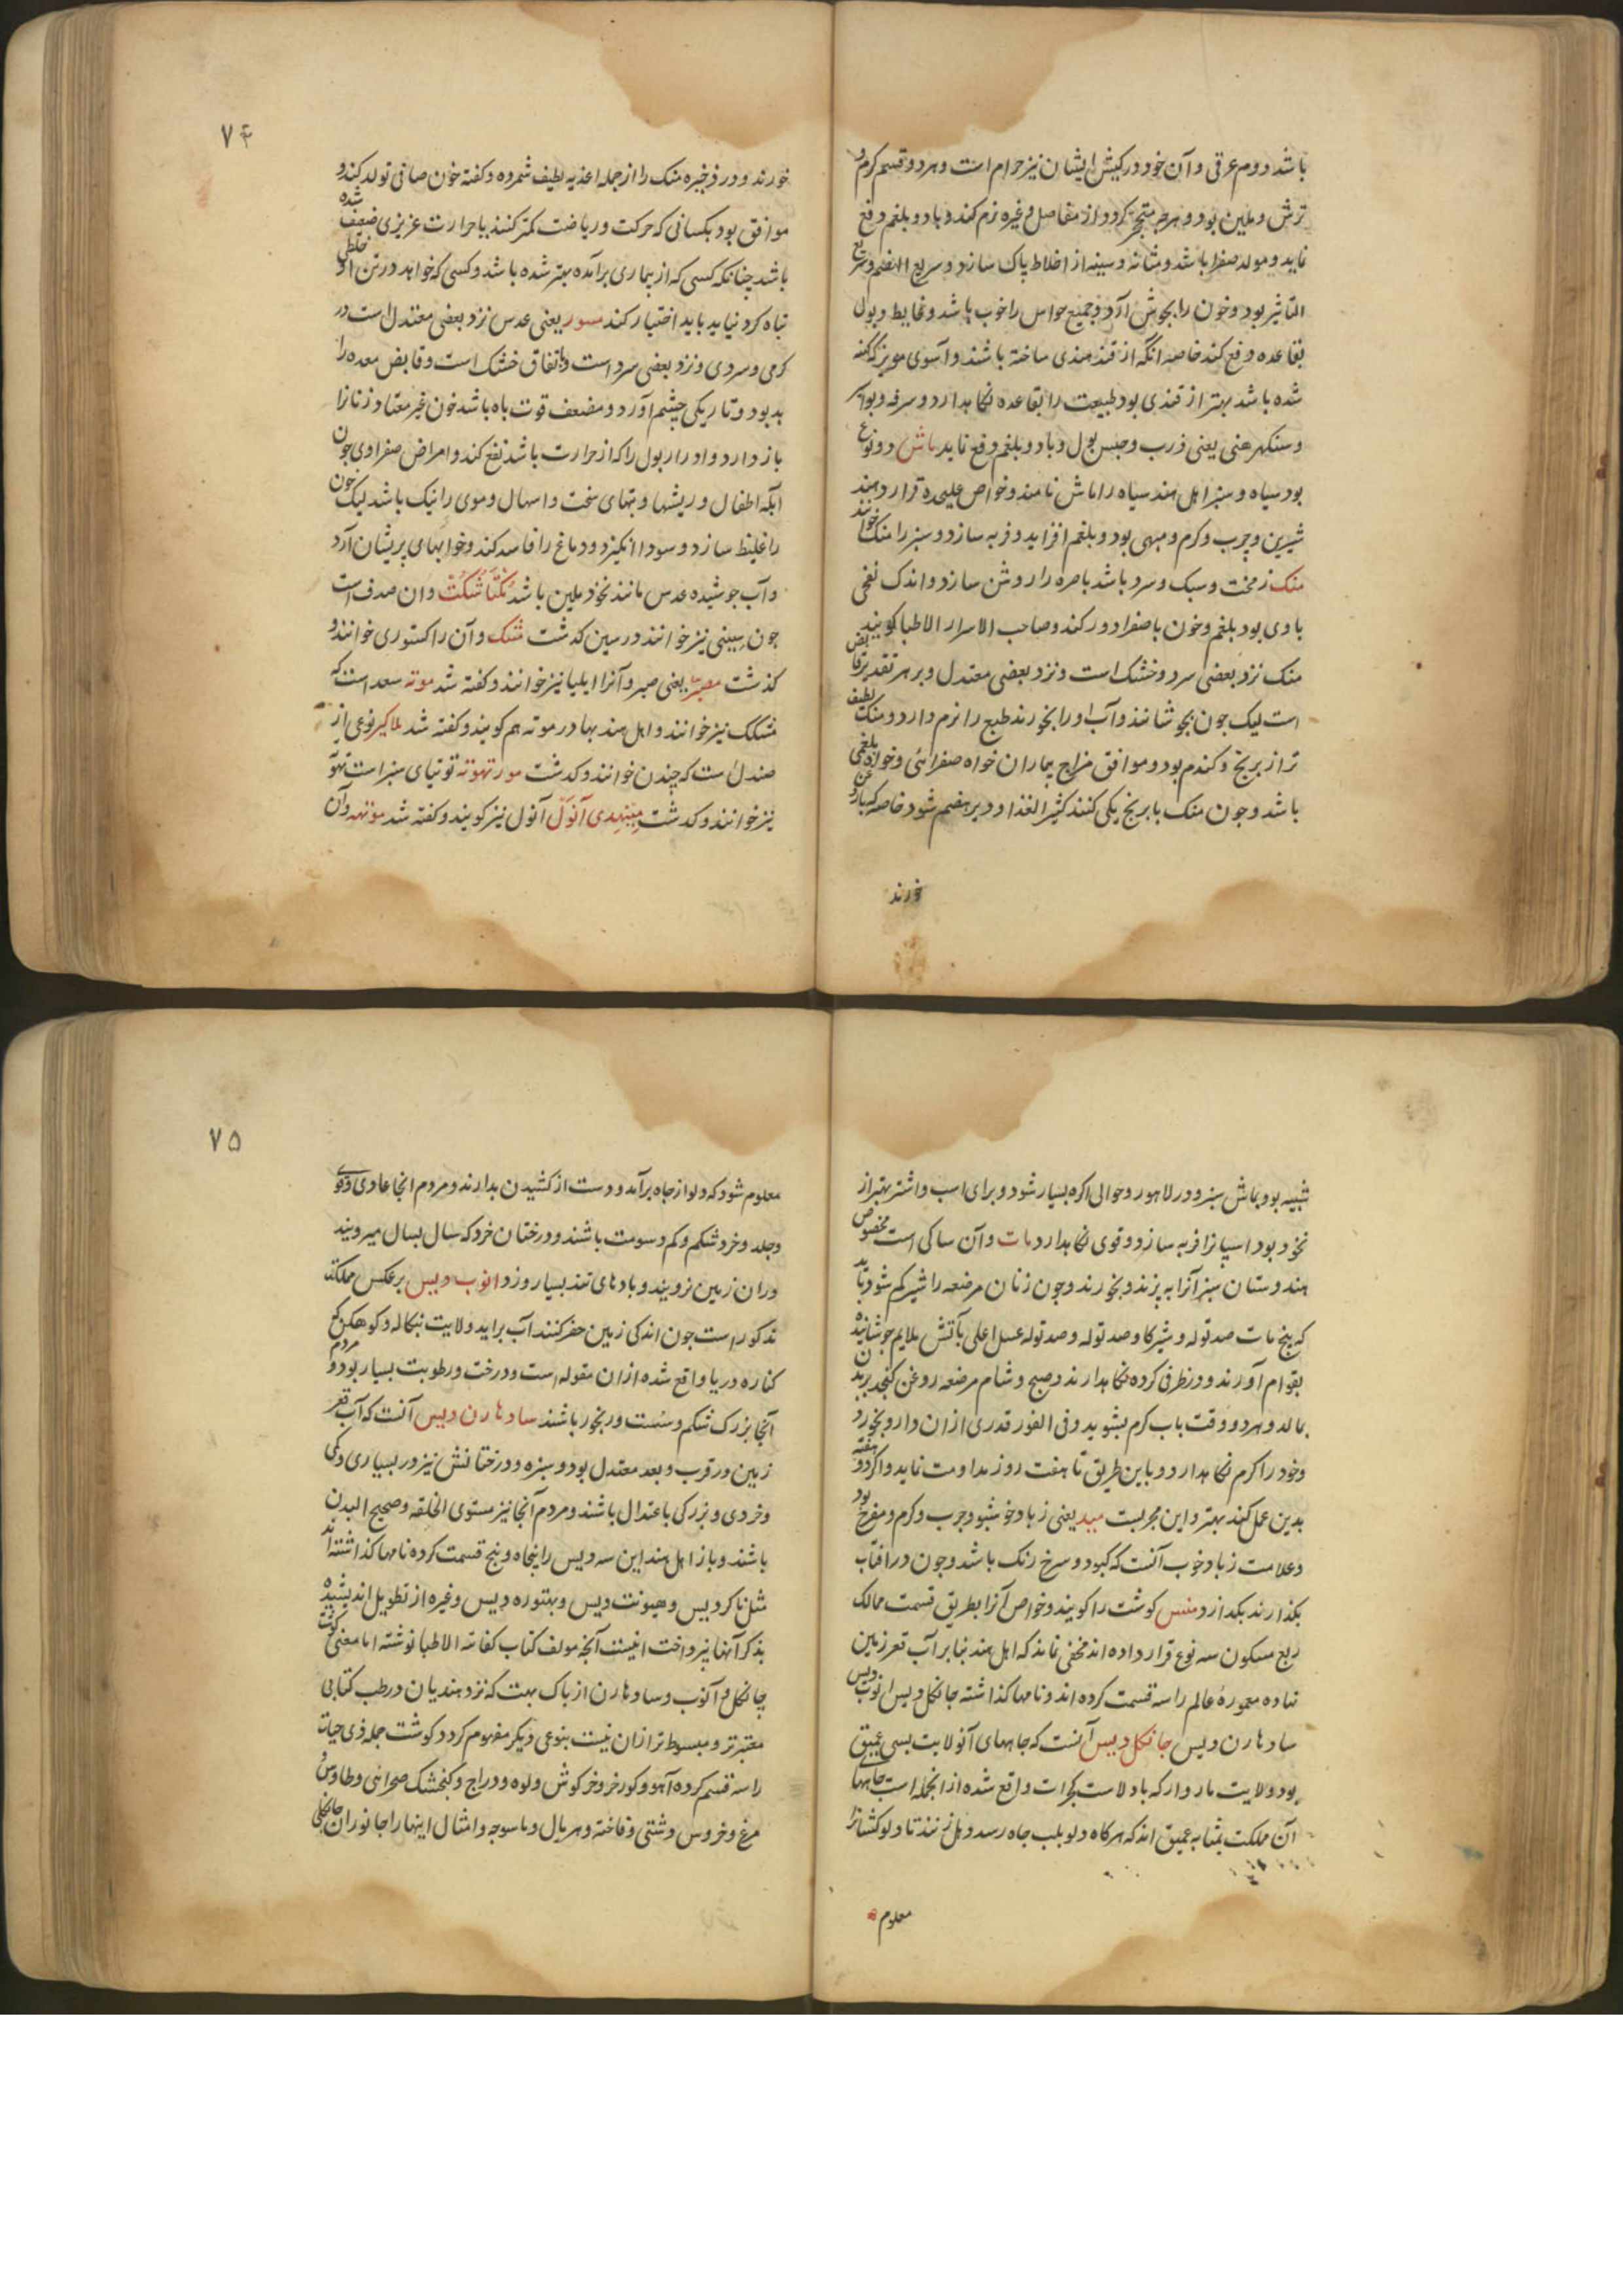 باشد دوم عرقی وآن خود در کیش ایشان نیز حرام است وهر دو قسم کرم و
ترش وملین بود وهرچه متحجر کردد از مفاصل وغیره نرم کند وباد وبلغم دفع
نماید ومولد صفرا باشد ومثانه وسینه از اخلاط پاک سازد وسریع الهضم وسریع
التاثیر بود وخون را بجوش آرد وجمیع حواس را خوب باشد وغایط وبول
بقاعده دفع کند خاصه انکه از قند هندی ساخته باشند وآسوی مویز که کهنه
شده باشد بهتر از قندی بود طبیعت را بقاعده نکاهدارد وسرفه وبواسیر
وسنکهرهنی یعنی ذرب وحبس بول وباد وبلغم دفع نماید ماش دو نوع
بود سیاه وسبز اهل هند سیاه را ماش نامند وخواص علیحده قرار دهند
شیرین وچرب وکرم ومبهی بود وبلغم افزاید وفربه سازد وسبز را منک خوانند
منک زمخت وسبک وسرد باشد باصره را روشن سازد واندک نفخی
با وی بود بلغم وخون با صفرا دور کند وصاحب الاسرار الاطبا کویند
منک نزد بعضی سرد وخشک است ونزد بعضی معتدل وبر هر تقدیر قابض
است لیک چون بجوشانند وآب او را بخورند طبع را نرم دارد ومنک لطیف
تر از برنج وکندم بود وموافق مزاج بیماران خواه صفرائی وخواه بلغمی
باشد وچون منک با برنج یکی کنند کثیر الغذا ودیر هضم شود خاصه که با روغن
خورند
۷۴
خورند ودر ذخیره منک را از جمله اغذیه لطیف شمرده وکفته خون صافی تولد کند و
موافق بود بکسانی که حرکت وریاضت کمتر کنند یا حرارت غریزی ضعیف شده
باشد چنانکه کسی که از بیماری برآمده بهتر شده باشد وکسی که خواهد در تن او خلطی
تباه کرد نیاید باید اختیار کند مسور یعنی عدس نزد بعضی معتدل است در
کرمی وسردی ونزد بعضی سرد است وباتفاق خشک است وقابض معده را
بد بود وتاریکی چشم آورد ومضعف قوت باه باشد خون غیر معتاد زنانرا
باز دارد وادرار بول را که از حرارت باشد نفع کند وامراض صفراوی چون
آبله اطفال وریشها وتبهای سخت واسهال وموی را نیک باشد لیک خون
را غلیظ سازد وسودا انکیزد ودماغ را فاسد کند وخوابهای پریشان آرد
وآب جوشیده عدس مانند نخود ملین باشد مکتاشکت وان صدف است
چون سیپی نیز خوانند در سین کذشت مشک وآن را کستوری خوانند و
کذشت مصبر یعنی صبر وآنرا ایلیا نیز خوانند وکفته شد موته سعد است که
مشکک نیز خوانند واهل هند بهادر موته هم کویند وکفته شد ملاکیر نوعی از
صندل است که چندن خوانند وکذشت مورتهوته توتیای سبز است تهوتهه
نیز خوانند وکذشت مینهدی آنول آنول نیز کویند وکفته شد موتهه وآن
شبیه بود بماش سبز ودر لاهور وحوالی اکره بسیار شود وبرای اسب واشتر بهتر از
نخود بود اسپانرا فربه سازد وقوی نکاهدارد مات وآن ساکی است مخصوص
هندوستان سبز آنرا به پزند وبخورند وچون زنان مرضعه را شیر کم شود باید
که بیخ مات صد توله وشیر کاو صد توله وصد توله عسل اعلی بآتش ملایم جوشانیده
بقوام آورند ودر ظرفی کرده نکاهدارند وصبح وشام مرضعه روغن کنجد بر بدن
بمالد وهر دو وقت بآب کرم بشوید وفی الفور قدری ازان دارو بخورد
وخود را کرم نکاهدارد وباین طریق تا هفت روز مداومت نماید واکر دو هفته
بدین عمل کند بهتر واین مجربست مید یعنی زباد خوشبو وچرب وکرم ومفرح بود
وعلامت زباد خوب آنست که کبود وسرخ رنک باشد وچون در آفتاب
بکذارند بکدازد منس کوشت را کویند وخواص آنرا بطریق قسمت ممالک
ربع مسکون سه نوع قرار داده اند مخفی نماند که اهل هند بنا بر آب قعر زمین
نهاده معموره عالم را سه قسمت کرده اند ونامها کذاشته جانکل دیس انوب دیس
سادهارن دیس جانکل دیس آنست که چاههای آنولایت بسی عمیق
بود ولایت ماروار که با ولایت کجرات واقع شده از انجمله است چاهها
آن مملکت بمثابه عمیق اند که هرکاه دلو بلب چاه رسد دهل زنند تا دلو کشانرا
معلوم
۷۵
معلوم شود که دلو از چاه برآمد ودست از کشیدن بدارند ومردم انجا عادی وقوی
وجلد وخرد شکم وکم دسومت باشند ودرختان خرد که سال بسال میرویند
دران زمین نرویند وبادهای تند بسیار وزد انوب دیس برعکس مملکت
مذکور است چون اندکی زمین حفر کنند آب برآید ولایت بنکاله وکوهکن که
کناره دریا واقع شده ازان مقوله است ودرخت ورطوبت بسیار بود ومردم
آنجا بزرک شکم وسست ورنجور باشند سادهارن دیس آنست که آب قعر
زمین در قرب وبعد معتدل بود وسبزه ودرختانش نیز در بسیاری وکمی
وخردی وبزرکی باعتدال باشند ومردم آنجا نیز مستوی الخلقه وصحیح البدن
باشند وباز اهل هند این سه دیس را پنجاه وپنج قسمت کرده نامها کذاشته اند
مثل ناکر دیس وهیونت دیس وبهتوره دیس وغیره از تطویل اندیشیده
بذکر آنها نپرداخت اینست آنچه مولف کتاب کفایة الاطبا نوشته اما معنی کوشت
جانکل وآنوب وسادهارن از باک بهت که نزد هندیان در طب کتابی
معتبرتر ومبسوط تر ازان نیست بنوعی دیکر مفهوم کردد کوشت جمله ذی حیات
را سه قسم کرده آهو وکورخر وخرکوش ولوه ودراج وکنجشک صحرائی وطاوس و
مرغ وخروس دشتی وفاخته وهریال وماسوچه وامثال اینها را جانوران جانکلی